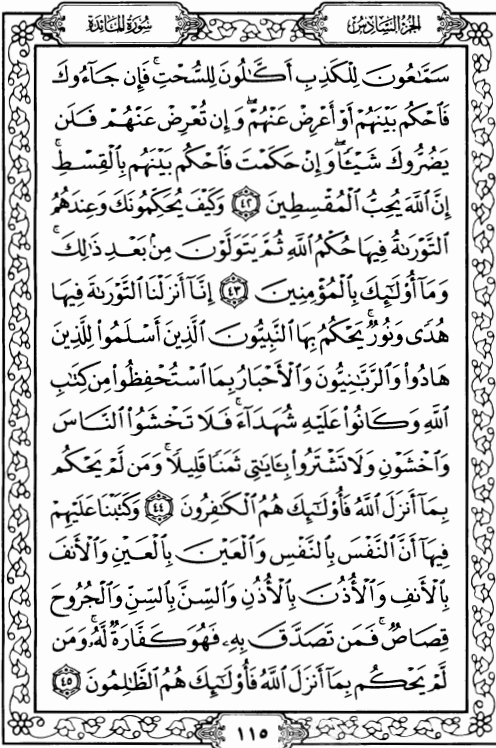 الجزء السادس
سورة المائدة
سَمَّٰعُونَ لِلْكَذِبِ أَكَّٰلُونَ لِلسُّحْتِ ۚ فَإِن جَآءُوكَ
فَٱحْكُم بَيْنَهُمْ أَوْ أَعْرِضْ عَنْهُمْ ۖ وَإِن تُعْرِضْ عَنْهُمْ فَلَن
يَضُرُّوكَ شَيْـًٔا ۖ وَإِنْ حَكَمْتَ فَٱحْكُم بَيْنَهُم بِٱلْقِسْطِ ۚ
إِنَّ ٱللَّهَ يُحِبُّ ٱلْمُقْسِطِينَ ٤٢ وَكَيْفَ يُحَكِّمُونَكَ وَعِندَهُمُ
ٱلتَّوْرَىٰةُ فِيهَا حُكْمُ ٱللَّهِ ثُمَّ يَتَوَلَّوْنَ مِنۢ بَعْدِ ذَٰلِكَ ۚ
وَمَآ أُو۟لَٰٓئِكَ بِٱلْمُؤْمِنِينَ ٤٣ إِنَّآ أَنزَلْنَا ٱلتَّوْرَىٰةَ فِيهَا
هُدًى وَنُورٌ ۚ يَحْكُمُ بِهَا ٱلنَّبِيُّونَ ٱلَّذِينَ أَسْلَمُوا۟ لِلَّذِينَ
هَادُوا۟ وَٱلرَّبَّٰنِيُّونَ وَٱلْأَحْبَارُ بِمَا ٱسْتُحْفِظُوا۟ مِن كِتَٰبِ
ٱللَّهِ وَكَانُوا۟ عَلَيْهِ شُهَدَآءَ ۚ فَلَا تَخْشَوُا۟ ٱلنَّاسَ
وَٱخْشَوْنِ وَلَا تَشْتَرُوا۟ بِـَٔايَٰتِى ثَمَنًا قَلِيلًا ۚ وَمَن لَّمْ يَحْكُم
بِمَآ أَنزَلَ ٱللَّهُ فَأُو۟لَٰٓئِكَ هُمُ ٱلْكَٰفِرُونَ ٤٤ وَكَتَبْنَا عَلَيْهِمْ
فِيهَآ أَنَّ ٱلنَّفْسَ بِٱلنَّفْسِ وَٱلْعَيْنَ بِٱلْعَيْنِ وَٱلْأَنفَ
بِٱلْأَنفِ وَٱلْأُذُنَ بِٱلْأُذُنِ وَٱلسِّنَّ بِٱلسِّنِّ وَٱلْجُرُوحَ
قِصَاصٌ ۚ فَمَن تَصَدَّقَ بِهِۦ فَهُوَ كَفَّارَةٌ لَّهُۥ ۚ وَمَن
لَّمْ يَحْكُم بِمَآ أَنزَلَ ٱللَّهُ فَأُو۟لَٰٓئِكَ هُمُ ٱلظَّٰلِمُونَ ٤٥
١١٥